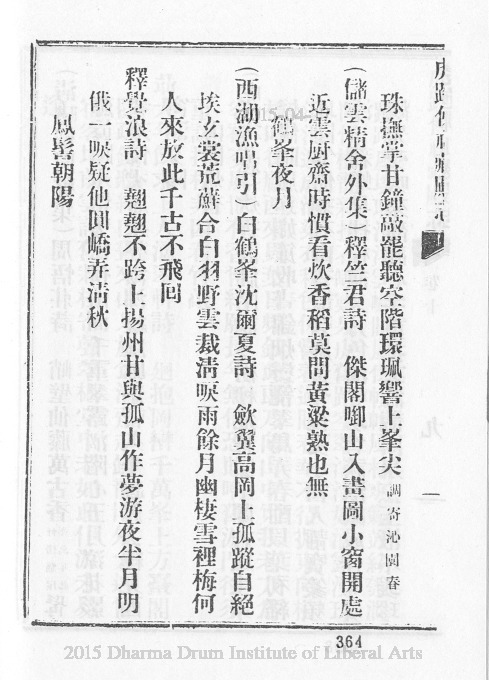 虎跑佛祖藏殿志
珠撫掌甘鐘敲罷聽空階環珮響上峯尖 調寄沁園春
(儲雲精舍外集)釋竺君詩 傑閣啣山入畫圖小窗開處
近雲厨齋時慣看炊香稻莫問黃粱熟也無
鶴峯夜月
(西湖漁唱引)白鶴峯沈爾夏詩 斂翼高岡上孤蹤自絕
埃玄裳荒蘚合白羽野雲裁淸唳雨餘月幽棲雪裡梅何
人來放此千古不飛回
釋覺浪詩 翹翹不跨上揚州甘與孤山作夢游夜半月明
俄一唳疑他圓嶠弄淸秋
鳳髻朝陽
一
364
2015 Dharma Drum Institute of Liberal Arts